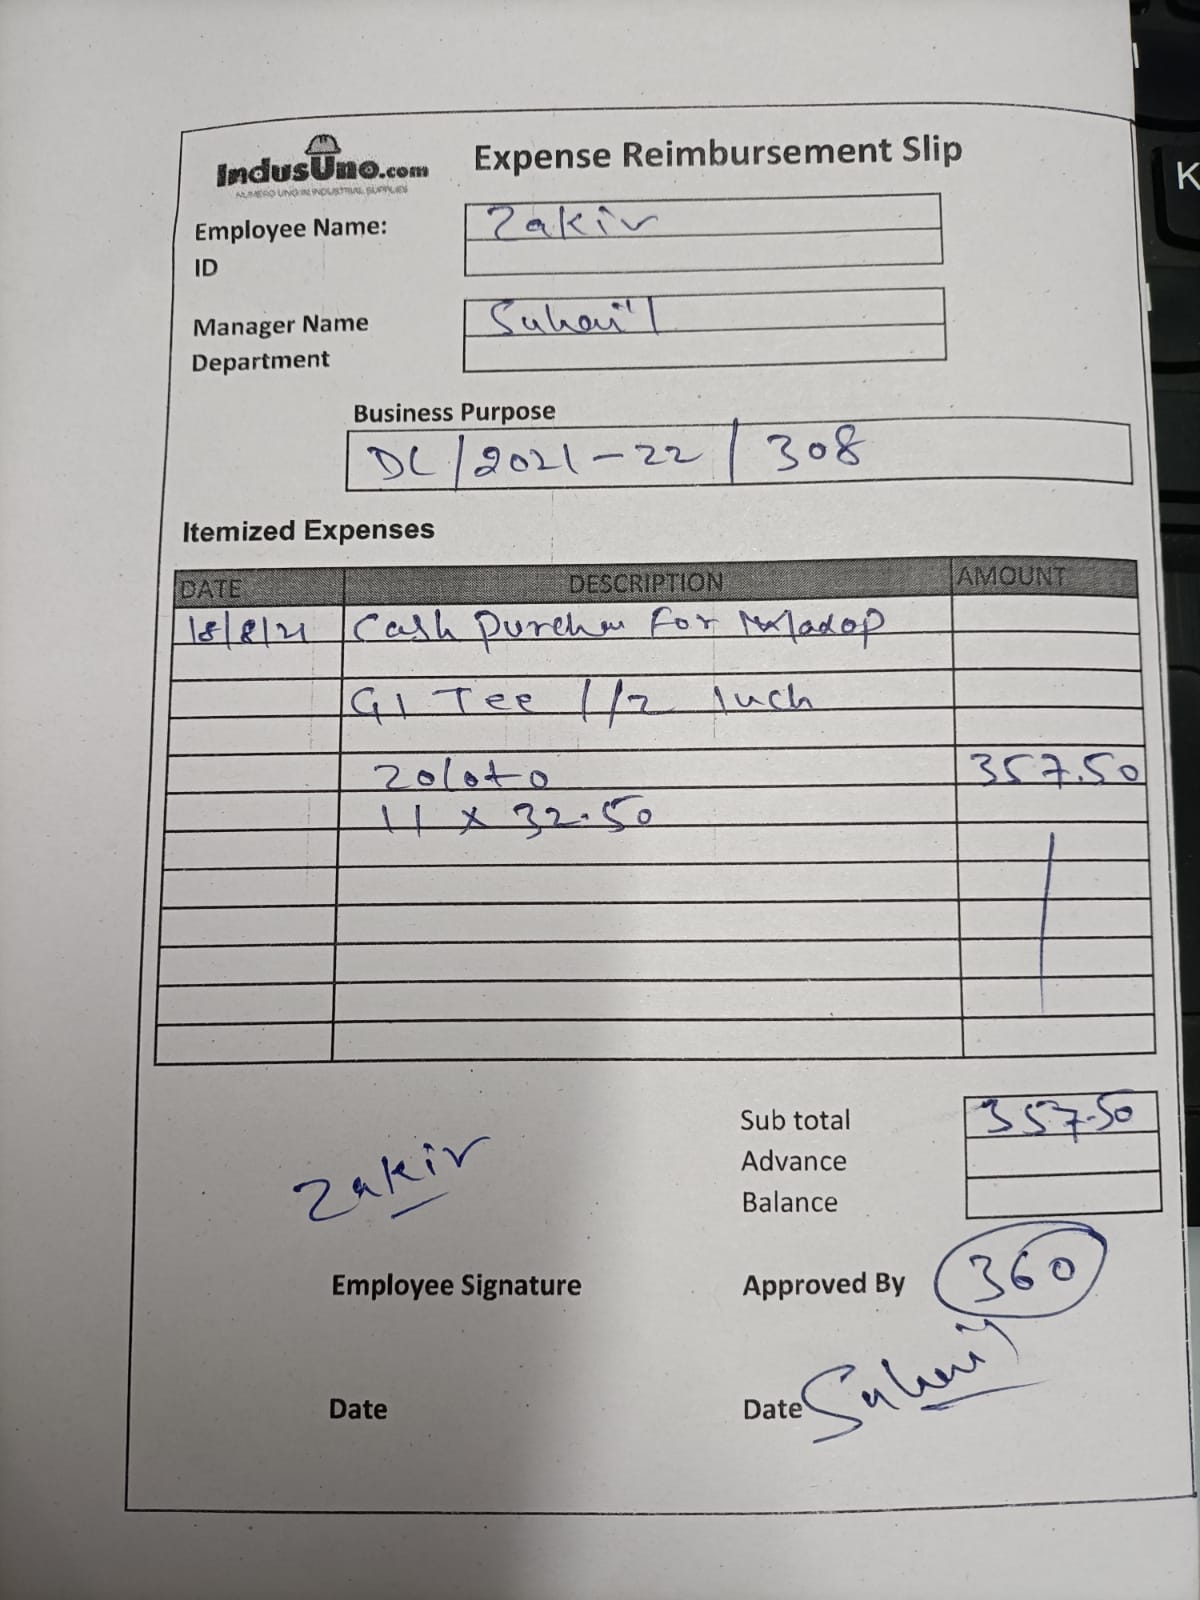 IndusUno.com
NUMERO UNO IN INDUSTRIAL SUPPLIES
Expense Reimbursement Slip
Employee Name: Zakir
ID
Manager Name Suhail
Department
Business Purpose
DC/2021-22/308
Itemized Expenses
DATE DESCRIPTION AMOUNT
18/8/21 Cash purchase For
GI Tee 1/2 Inch
Zoloto 357.50
11 x 32.50
Sub total 357.50
Advance
Balance
Zakir
Employee Signature Approved By 360
Date Date Suhail
K